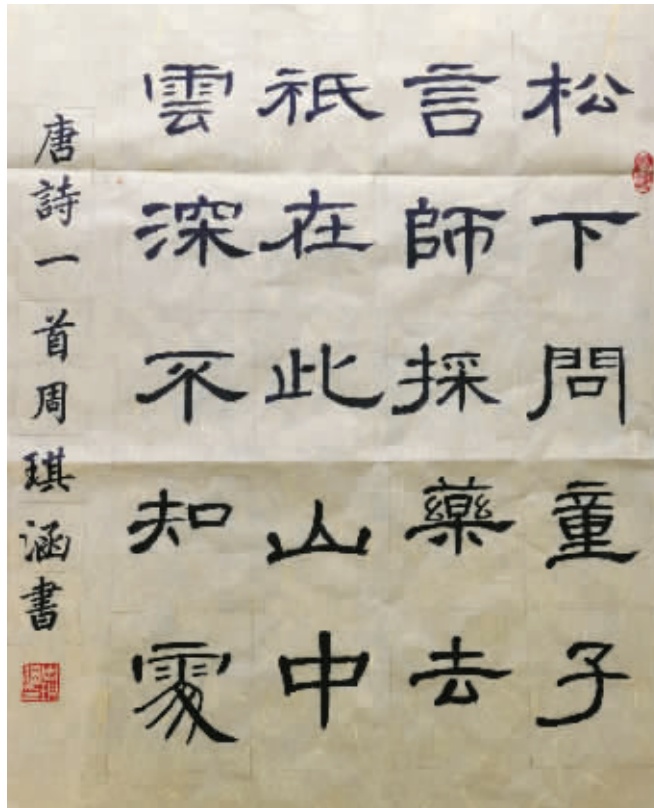 松下問童子
言師採藥去
祇在此山中
雲深不知處
唐詩一首周琪涵書